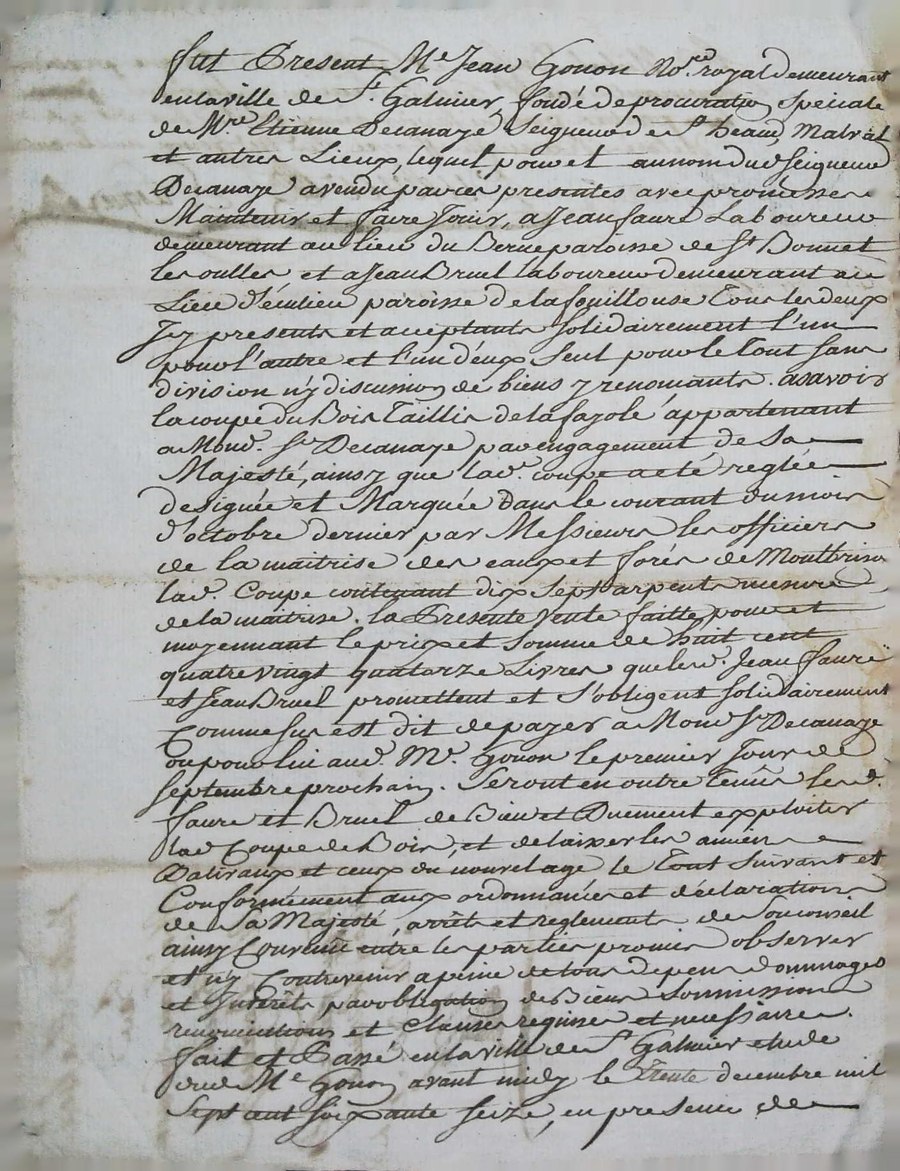 fut Present Me Jean Gonon No.re royal demeurant
en la ville de St. Galmier, fondé de procuration speciale
de Mre Etienne Decanaye Seigneur de St heand, Malval
et autres Lieux, lequel pour et au nom dud seigneur
Decanaye a vendu par ces presentes avec promesse
Maintenir et faire Jouir, a Jean faure Laboureur
demeurant au lieu du Berne paroisse de St Bonnet
les oulles et a Jean Bruel laboureur demeurant au
Lieu d'eculieu paroisse de la fouillouse Tous les deux
Jcy presents et acceptants solidairement l'un
pour l'autre et l'un d'eux seul pour le Tout sans
division n'y discussion de biens y renonçants. asavoir
la coupe du Bois Taillis de la fayole appartenant
a Mond. Sr. Decanaye par engagement de Sa
Majesté, ainsy que lad. coupe a eté reglée
designée et Marquée Dans le courant du mois
d'octobre dernier par Messieurs les officiers
de la maitrise des eaux et forés de Montbrison
lad. Coupe contenant dix sept arpents mesure
de la maitrise. la Presente vente faitte pour et
moyennant le prix et somme de huit cent
quatrevingt quatorze Livres que led. Jean faure
et Jean Bruel promettent et s'obligent solidairement
Comme sus est dit de payer a Mond Sr Decanaye
ou pour lui aud. Me. Gonon le premier Jour de
septembre prochain. Seront en outre Tenus lesd.
faure et Bruel de Bien et Duement exploiter
lad Coupe de Bois, et de laisser les anciens
Baliveaux et ceux du nouvel age le Tout suivant et
Conformement aux ordonnances et declarations
de Sa Majesté, arrêts et reglements de son conseil
ainsy Convenu entre les parties promis observer
et n'y Contrevenir a peine de tous depens dommages
et Interêts par obligation de Biens soumissions
renonciations et clauses requises et necessaires.
fait et Passé en la ville de St Galmier etude
dud Me Gonon avant midy le Trente decembre mil
sept cent soixante seize, en presence de